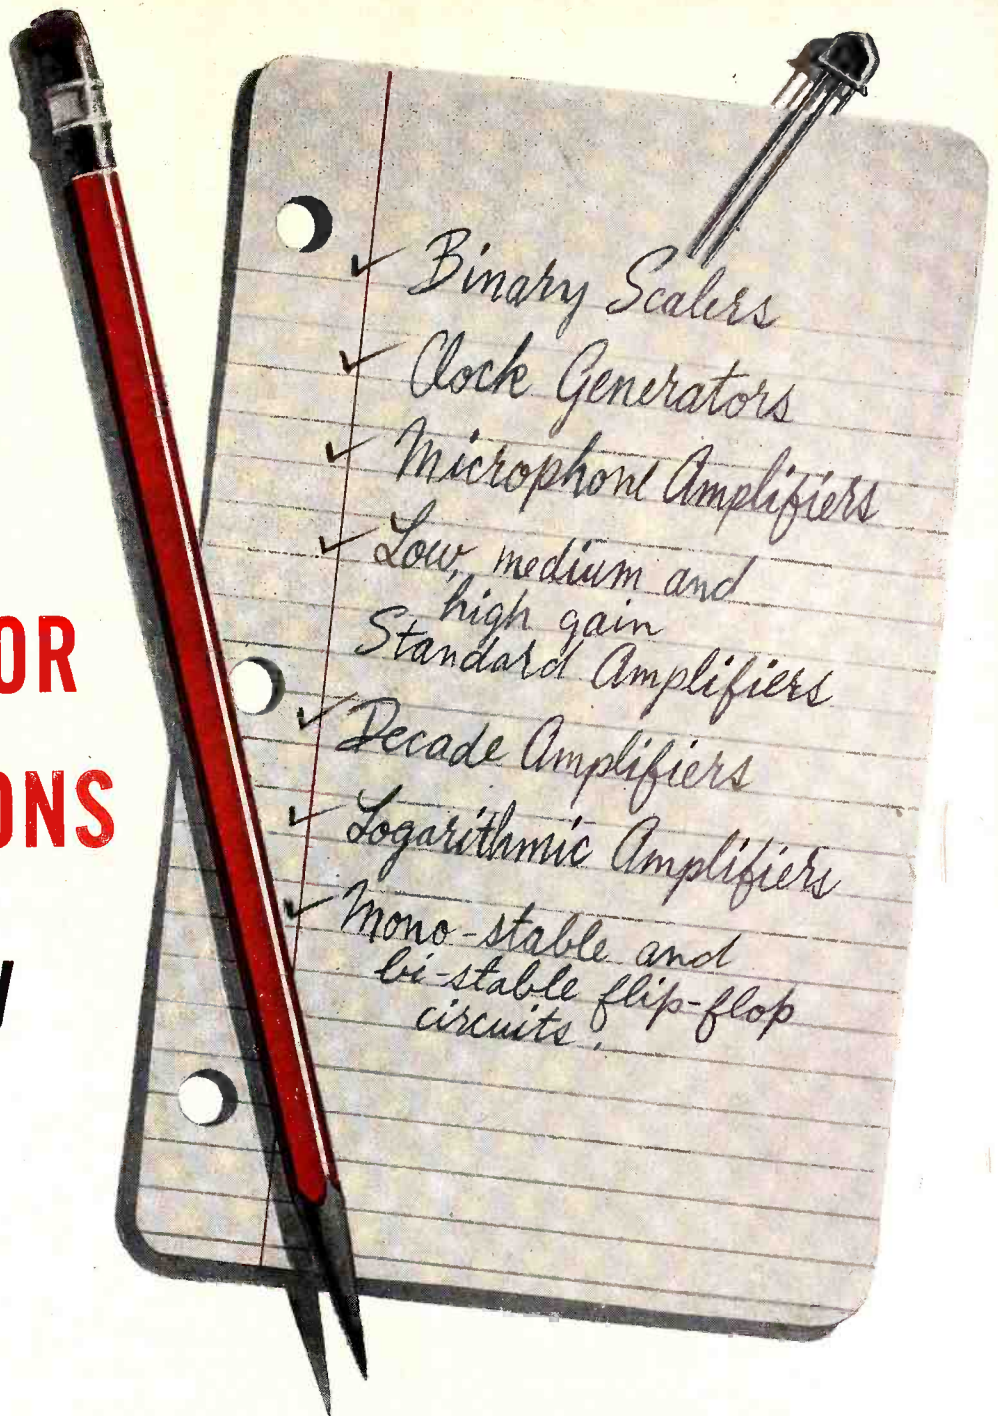 Binary Scalers
Clock Generators
Microphone Amplifiers
Low, medium and
high gain
Standard Amplifiers
Decade Amplifiers
Logarithmic Amplifiers
Mono-stable and
bi-stable flip-flop
circuits.
OR
ONS